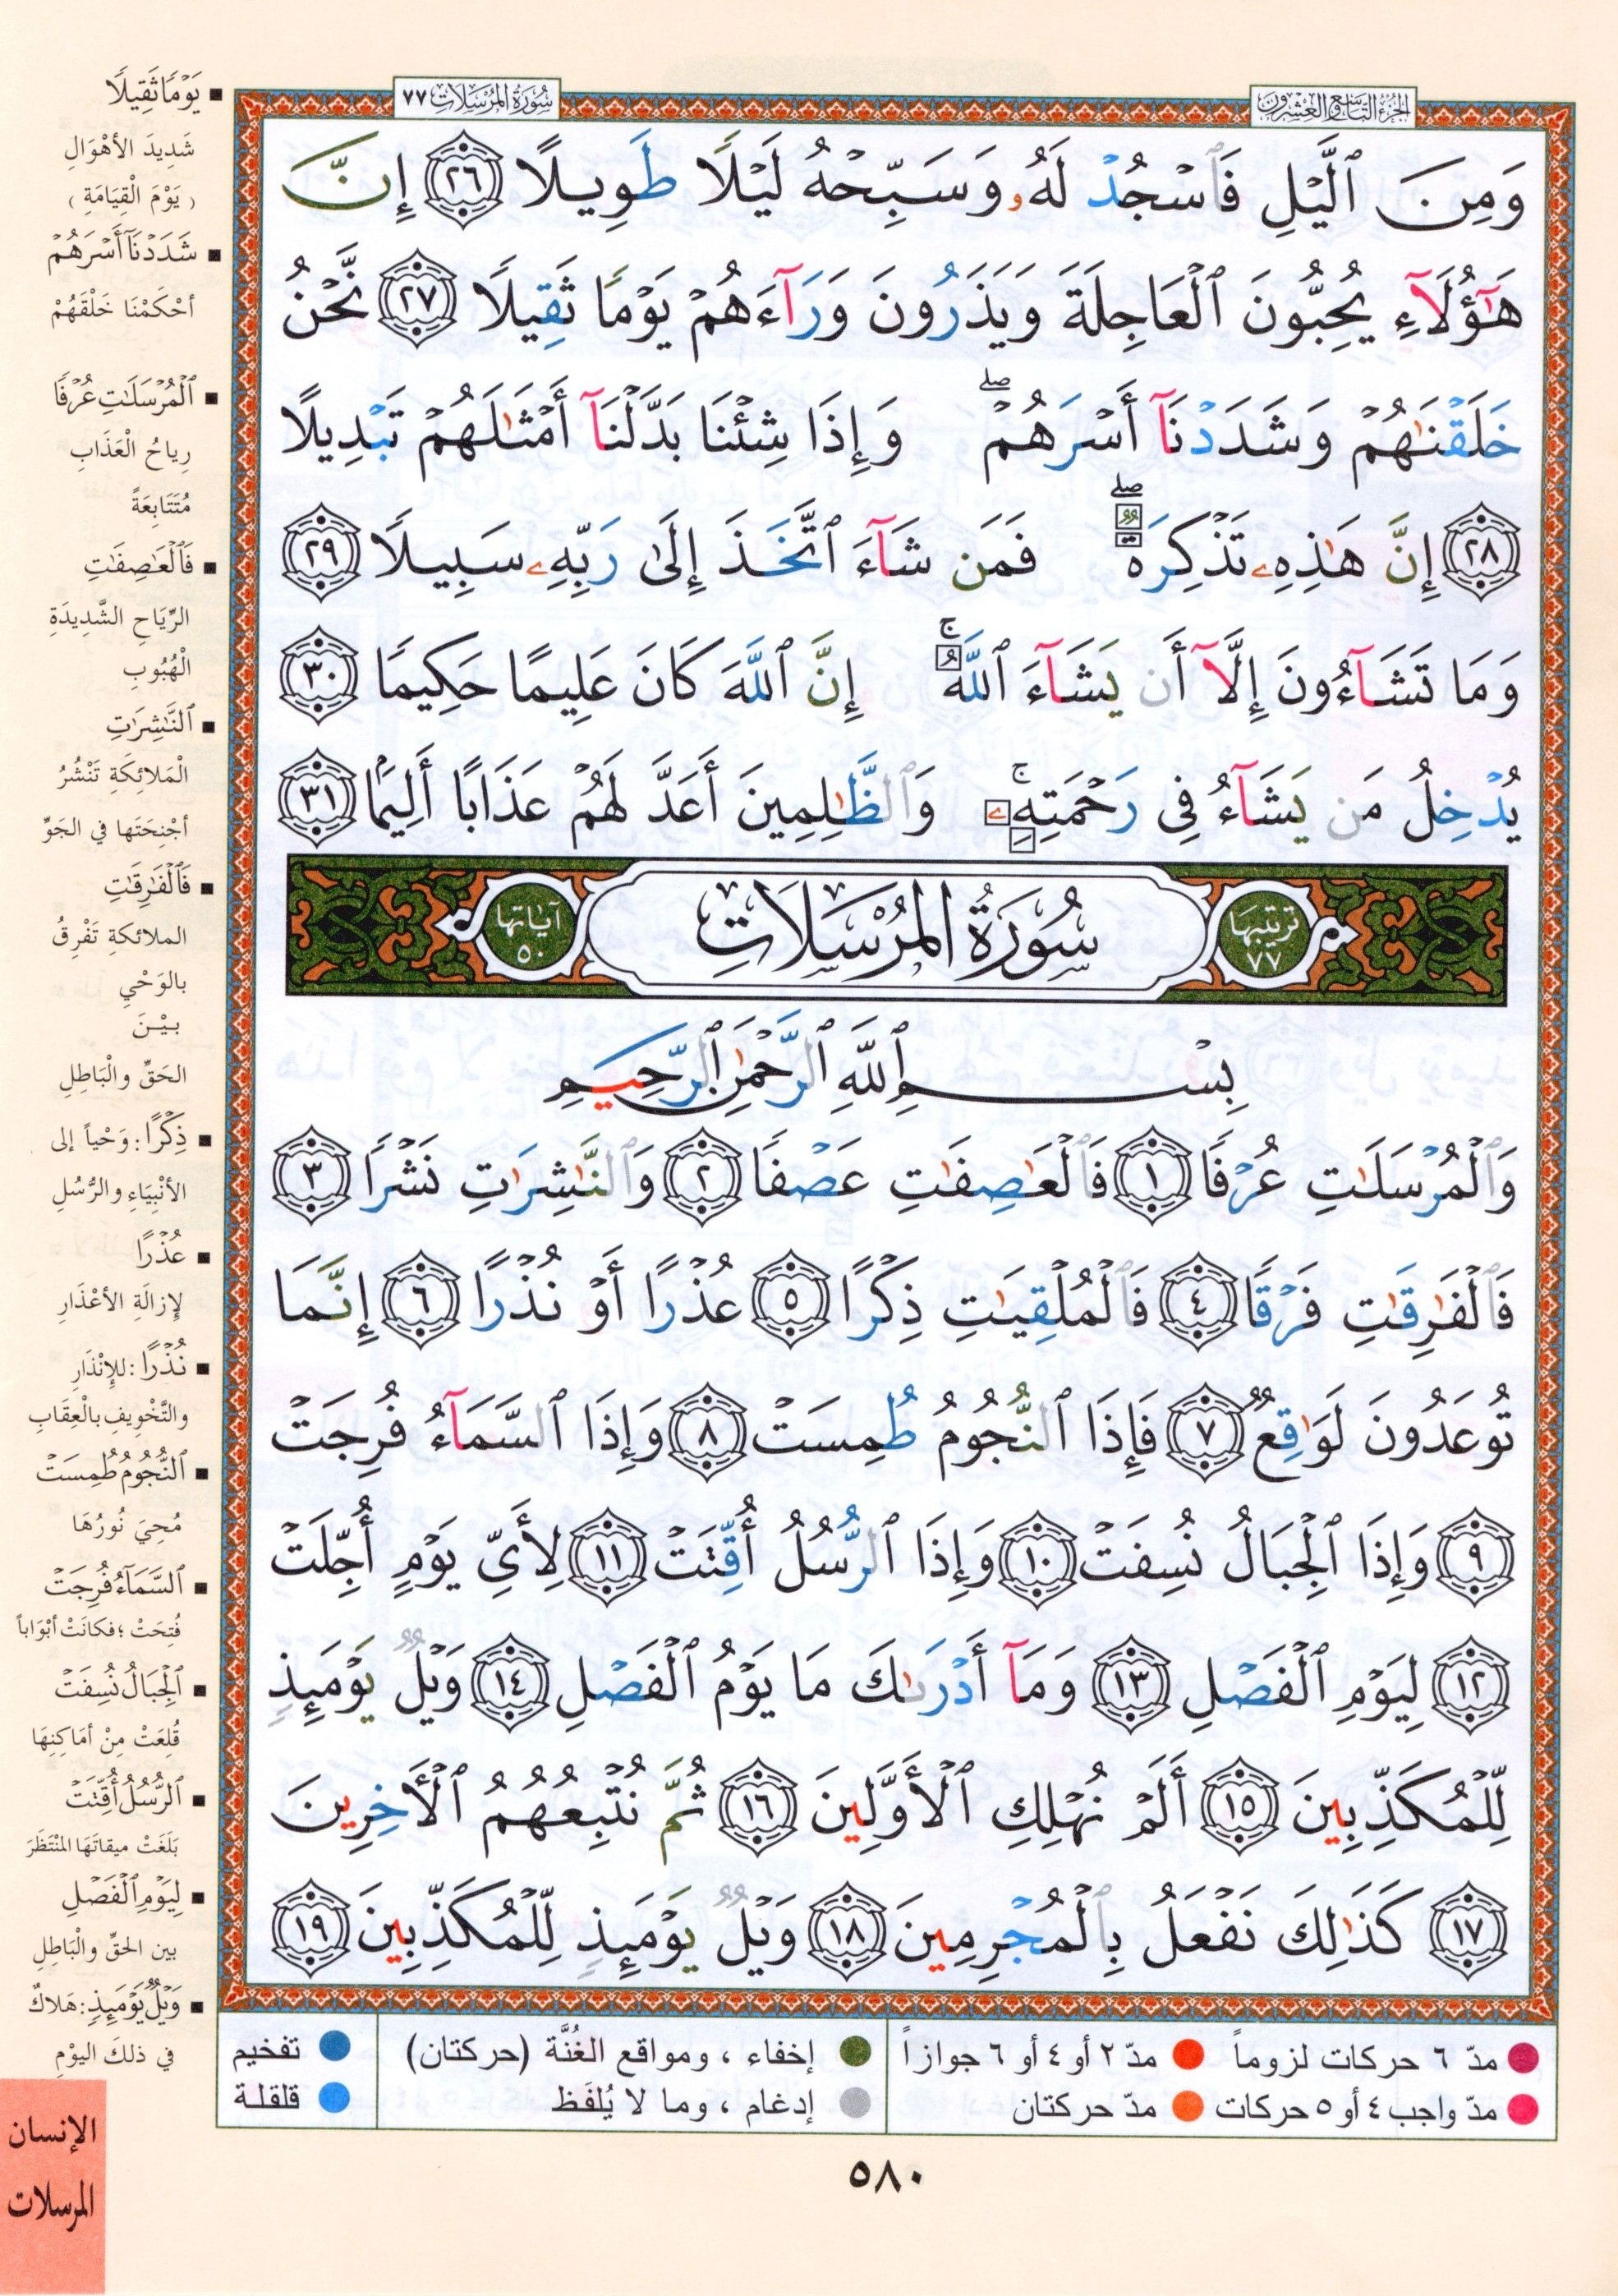 الجزء التاسع والعشرون
سورة المرسلات ٧٧
وَمِنَ ٱلَّيْلِ فَٱسْجُدْ لَهُۥ وَسَبِّحْهُ لَيْلًا طَوِيلًا ٢٦ إِنَّ
هَٰٓؤُلَآءِ يُحِبُّونَ ٱلْعَاجِلَةَ وَيَذَرُونَ وَرَآءَهُمْ يَوْمًا ثَقِيلًا ٢٧ نَّحْنُ
خَلَقْنَٰهُمْ وَشَدَدْنَآ أَسْرَهُمْ ۖ وَإِذَا شِئْنَا بَدَّلْنَآ أَمْثَٰلَهُمْ تَبْدِيلًا
٢٨ إِنَّ هَٰذِهِۦ تَذْكِرَةٌ ۖ فَمَن شَآءَ ٱتَّخَذَ إِلَىٰ رَبِّهِۦ سَبِيلًا ٢٩
وَمَا تَشَآءُونَ إِلَّآ أَن يَشَآءَ ٱللَّهُ ۚ إِنَّ ٱللَّهَ كَانَ عَلِيمًا حَكِيمًا ٣٠
يُدْخِلُ مَن يَشَآءُ فِى رَحْمَتِهِۦ ۚ وَٱلظَّٰلِمِينَ أَعَدَّ لَهُمْ عَذَابًا أَلِيمًۢا ٣١
ترتيبها ٧٧
سُورَةُ المُرْسَلَاتِ
آياتها ٥٠
بِسْمِ ٱللَّهِ ٱلرَّحْمَٰنِ ٱلرَّحِيمِ
وَٱلْمُرْسَلَٰتِ عُرْفًا ١ فَٱلْعَٰصِفَٰتِ عَصْفًا ٢ وَٱلنَّٰشِرَٰتِ نَشْرًا ٣
فَٱلْفَٰرِقَٰتِ فَرْقًا ٤ فَٱلْمُلْقِيَٰتِ ذِكْرًا ٥ عُذْرًا أَوْ نُذْرًا ٦ إِنَّمَا
تُوعَدُونَ لَوَٰقِعٌ ٧ فَإِذَا ٱلنُّجُومُ طُمِسَتْ ٨ وَإِذَا ٱلسَّمَآءُ فُرِجَتْ
٩ وَإِذَا ٱلْجِبَالُ نُسِفَتْ ١٠ وَإِذَا ٱلرُّسُلُ أُقِّتَتْ ١١ لِأَىِّ يَوْمٍ أُجِّلَتْ
١٢ لِيَوْمِ ٱلْفَصْلِ ١٣ وَمَآ أَدْرَىٰكَ مَا يَوْمُ ٱلْفَصْلِ ١٤ وَيْلٌ يَوْمَئِذٍ
لِّلْمُكَذِّبِينَ ١٥ أَلَمْ نُهْلِكِ ٱلْأَوَّلِينَ ١٦ ثُمَّ نُتْبِعُهُمُ ٱلْءَاخِرِينَ
١٧ كَذَٰلِكَ نَفْعَلُ بِٱلْمُجْرِمِينَ ١٨ وَيْلٌ يَوْمَئِذٍ لِّلْمُكَذِّبِينَ ١٩
يَوْمًا ثَقِيلًا
شَدِيدَ الأَهْوَالِ
(يَوْمَ الْقِيَامَةِ)
شَدَدْنَآ أَسْرَهُمْ
أَحْكَمْنَا خَلْقَهُمْ
ٱلْمُرْسَلَٰتِ عُرْفًا
رِياحُ الْعَذَابِ
مُتَتَابِعَةً
فَٱلْعَٰصِفَٰتِ
الرِّيَاحِ الشَّدِيدَةِ
الْهُبُوبِ
ٱلنَّٰشِرَٰتِ
الْمَلائِكَةِ تَنْشُرُ
أَجْنِحَتَها في الجَوِّ
فَٱلْفَٰرِقَٰتِ
الملائكةِ تَفْرِقُ
بالوَحْيِ
بيْنَ
الحَقِّ والْبَاطِلِ
ذِكْرًا: وَحْياً إلى
الأنْبِيَاءِ والرُّسُلِ
عُذْرًا
لإزالَةِ الأعْذَارِ
نُذْرًا: للإِنْذَارِ
والتَّخْوِيفِ بالْعِقَابِ
ٱلنُّجُومُ طُمِسَتْ
مُحِيَ نُورُهَا
ٱلسَّمَآءُ فُرِجَتْ
فُتِحَتْ؛ فكانَتْ أبْوَاباً
ٱلْجِبَالُ نُسِفَتْ
قُلِعَتْ مِنْ أمَاكِنِهَا
ٱلرُّسُلُ أُقِّتَتْ
بَلَغَتْ ميقاتَهَا المُنْتَظَرَ
لِيَوْمِ ٱلْفَصْلِ
بين الحَقِّ والْبَاطِلِ
وَيْلٌ يَوْمَئِذٍ: هَلاكٌ
في ذلكَ اليوْمِ
مدّ ٦ حركات لزوماً
مدّ ٢ أو ٤ أو ٦ جوازاً
إخفاء ، ومواقع الغُنَّة (حركتان)
تفخيم
مدّ واجب ٤ أو ٥ حركات
مدّ حركتان
إدغام ، وما لا يُلفَظ
قلقلة
٥٨٠
الإنسان
المرسلات